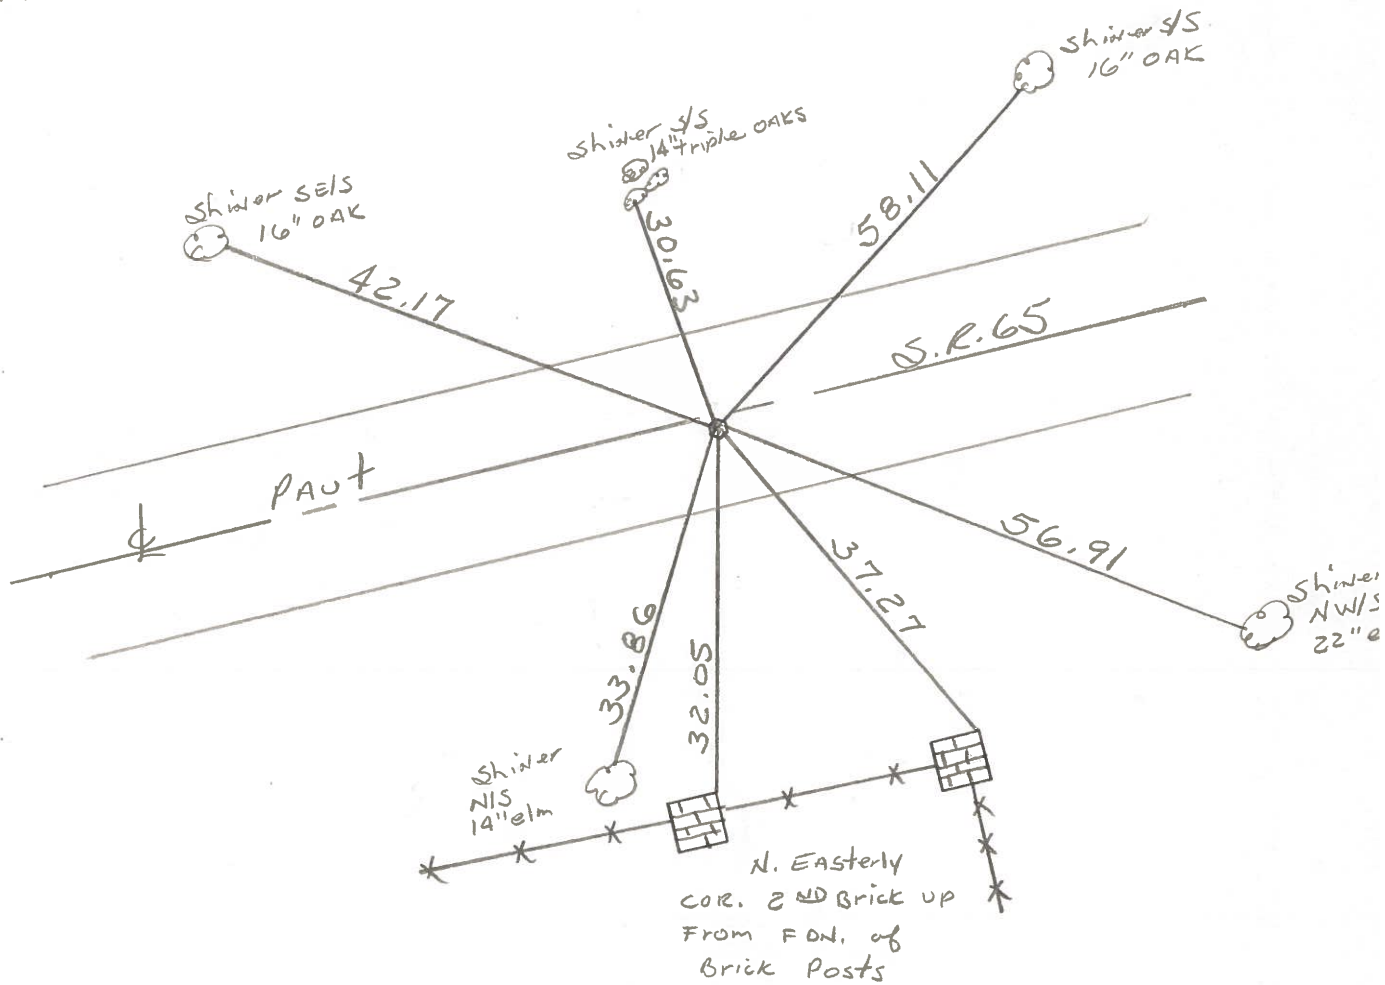 Shiner S/S
16" OAK
Shiner S/S
14" triple OAKS
Shiner SE/S
16" OAK
58.11
30.63
42.17
S.R. 65
PAVt
℄
56.91
37.27
33.86
32.05
Shiner
NW/S
22"
Shiner
N/S
14" elm
N. EASterly
COR. 2ND Brick up
From FDN. of
Brick Posts